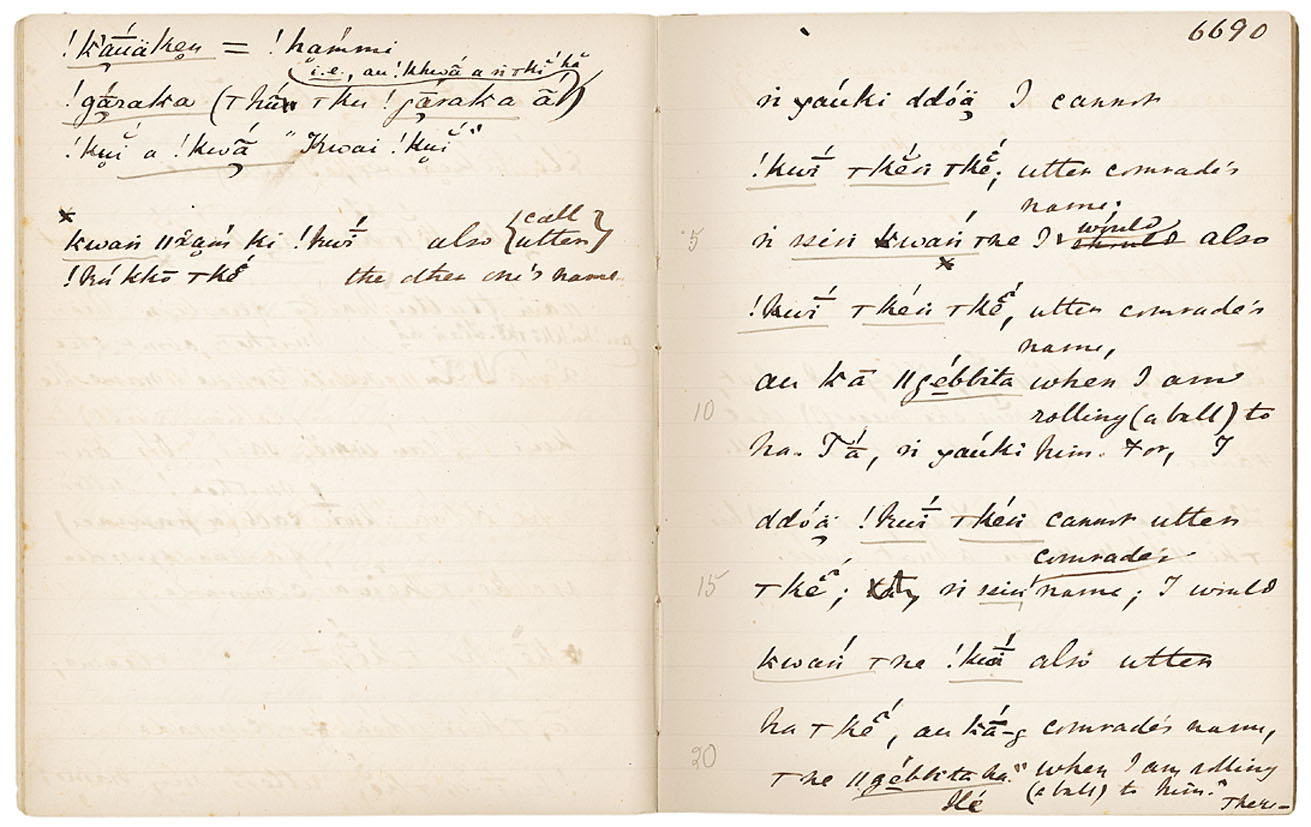 !k'āṹäken = !hámmi
"i.e., au !khwā́ a ṅ ꞇkĭ' hă
!gā́raka (ꞇhā́ ꞇku !gā́raka ā́)
!kṵĭ́ a !kwā́ "Kwai !kṵĭ́"
× kwań ǁχa̰ḿ ki !kwī́ also {call utter}
!hú kkō ꞇkĕ́ the other one's name.
6690
ṅ yaúki ddóä̰ I cannot
!kwī́ ꞇkéń ꞇkĕ́; utter comrade's
name;
5 ṅ sseiń kwań ꞇne I would also
×
!kwī́ ꞇkéń ꞇkĕ́, utter comrade's
name,
au kā ǁgébbita when I am
10 rolling (a ball) to
ha. Tā́, ṅ yaúki him. For, I
ddóä̰ !kwī́ ꞇkéń cannot utter
comrade's
15 ꞇkĕ́; ṅ sseiń name; I would
kwań ꞇne !kwī́ also utter
ha ꞇkĕ́, au kā́-g comrade's name,
20 ꞇne ǁgébbita ha." when I am rolling
(a ball) to him."
Hé There-